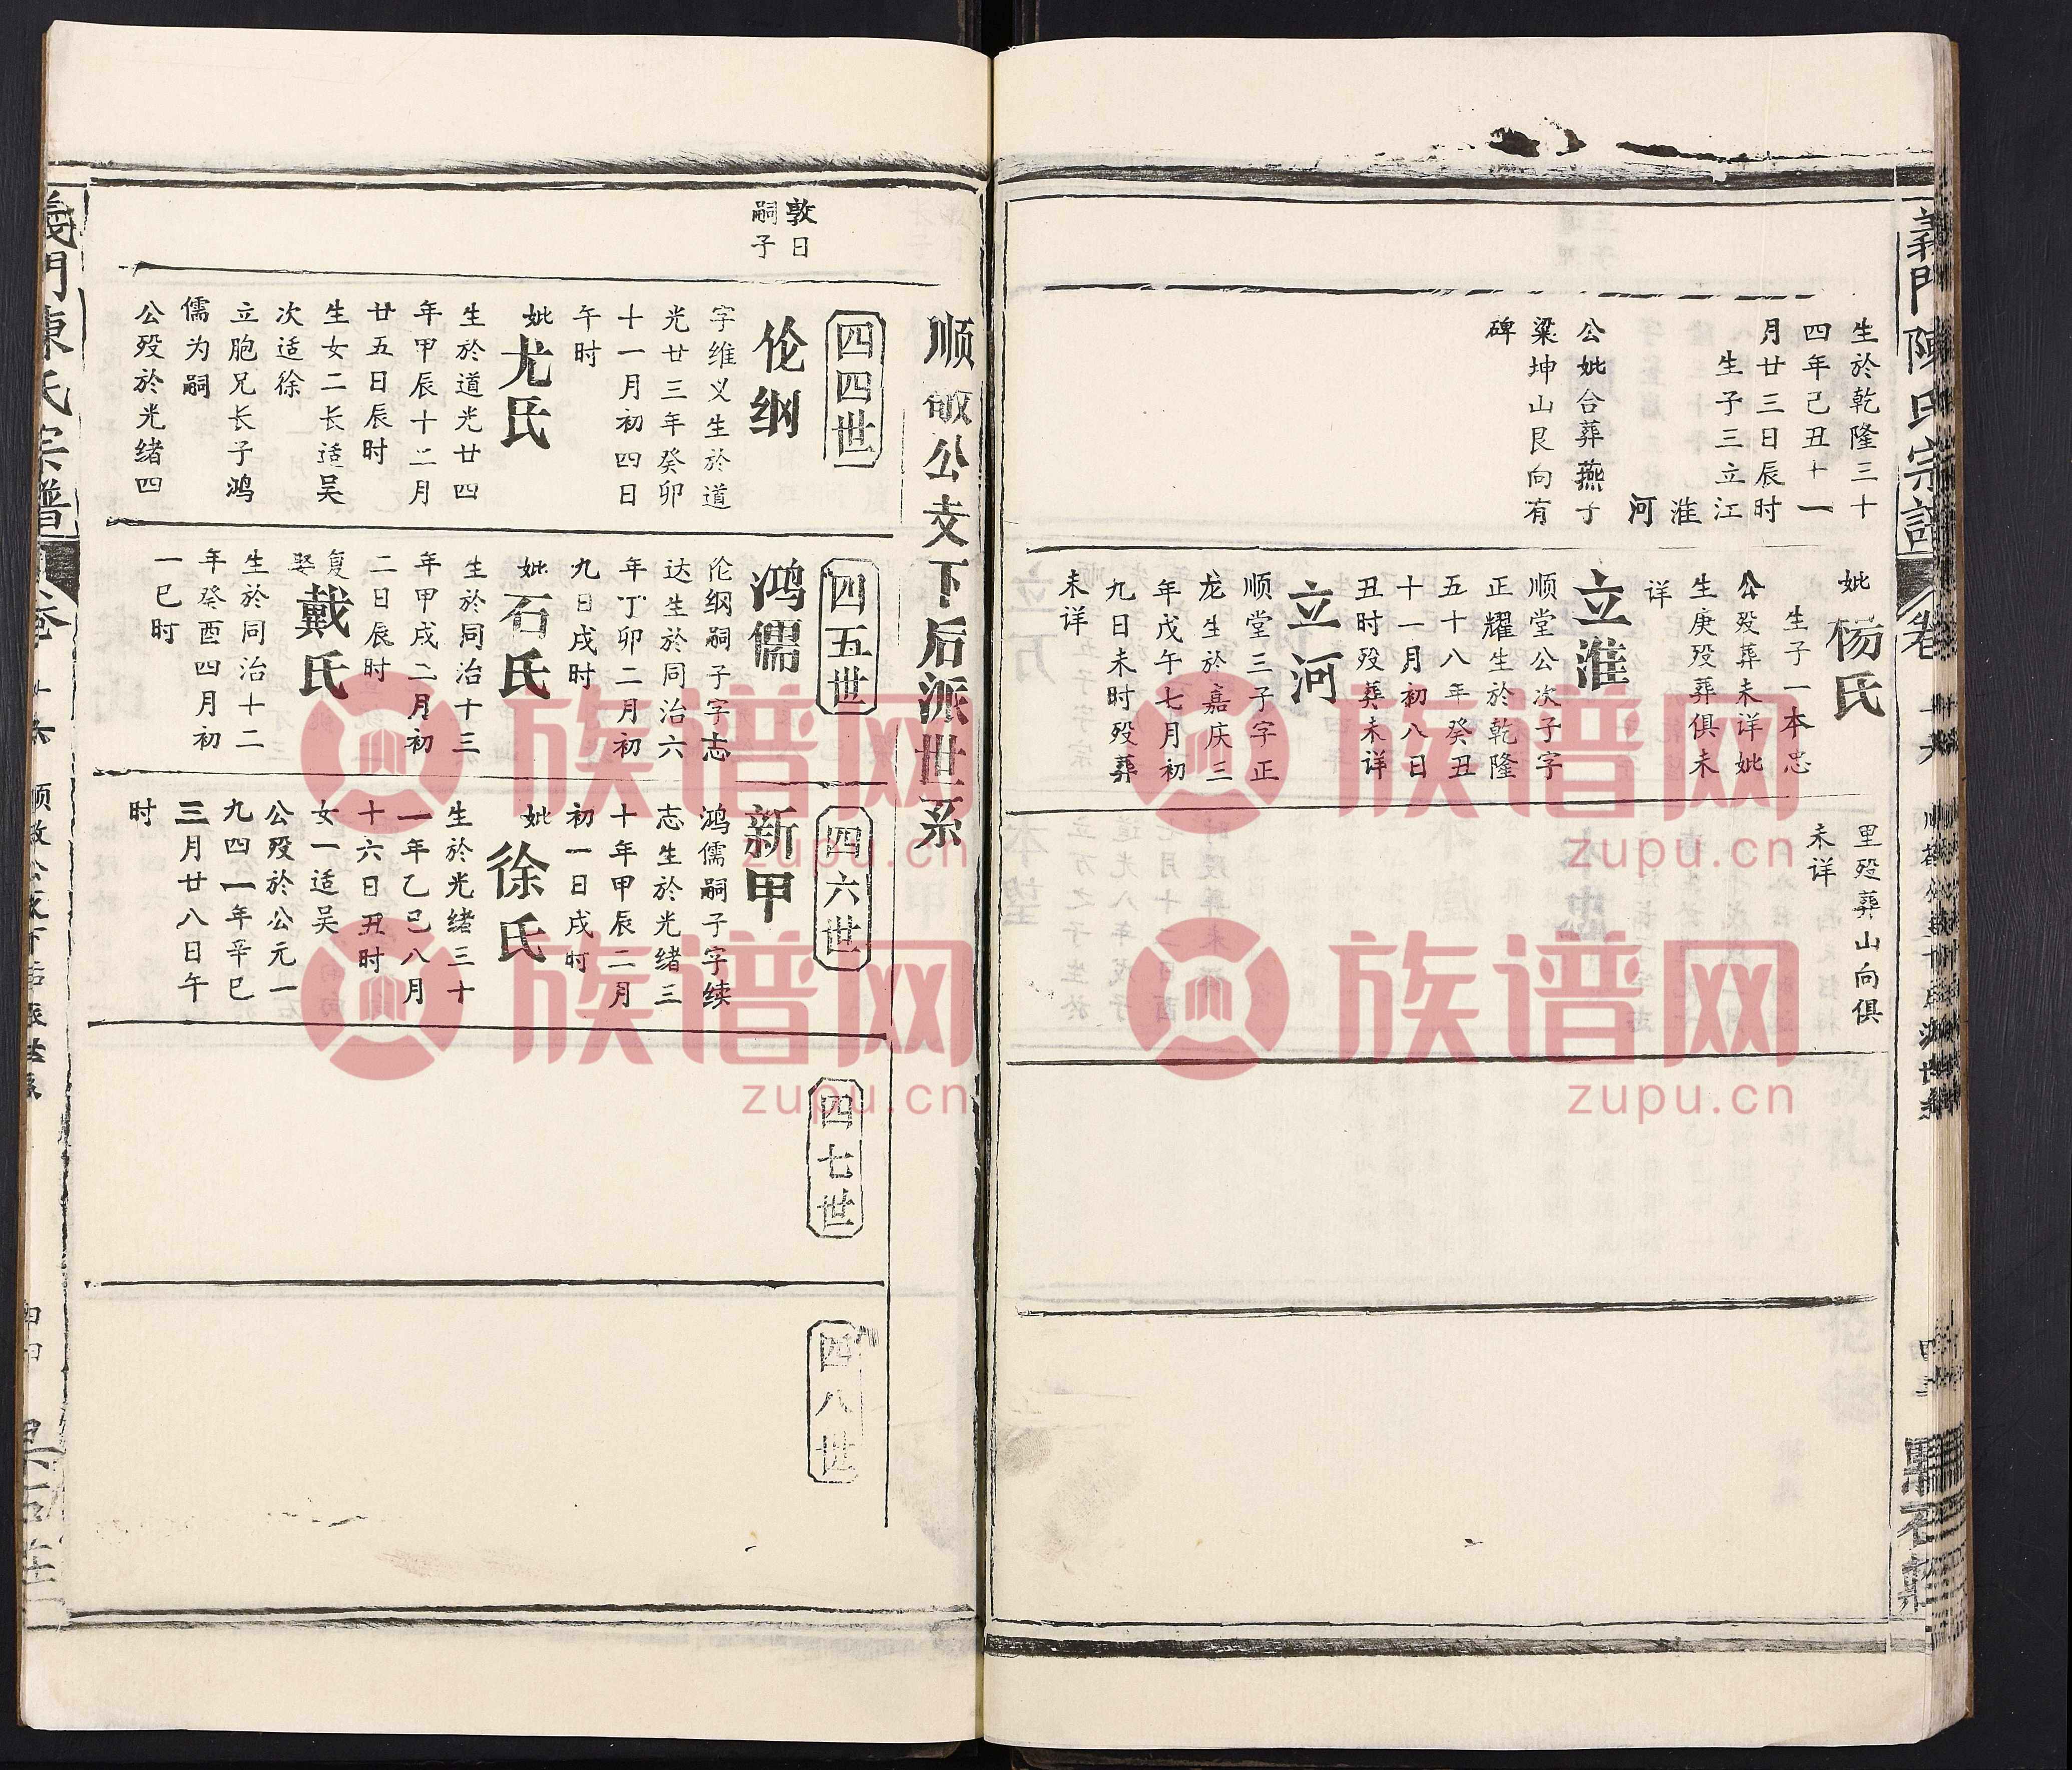 義門陳氏宗譜
卷
十六
四三
生於乾隆三十
四年己丑十一
月廿三日辰时
生子三立江
淮
河
公妣合葬燕子
梁坤山艮向有
碑
妣杨氏
生子一本忠
公殁葬未详妣
生庚殁葬俱未
详
立淮
顺堂公次子字
正耀生於乾隆
五十八年癸丑
十一月初八日
丑时殁葬未详
立河
顺堂三子字正
龙生於嘉庆三
年戊午七月初
九日未时殁葬
未详
里殁葬山向俱
未详
顺敬公支下后派世系
敦日
嗣子
四四世
伦纲
字维义生於道
光廿三年癸卯
十一月初四日
午时
妣尤氏
生於道光廿四
年甲辰十二月
廿五日辰时
生女二长适吴
次适徐
立胞兄长子鸿
儒为嗣
公殁於光绪四
四五世
鸿儒
伦纲嗣子字志
达生於同治六
年丁卯二月初
九日戌时
妣石氏
生於同治十三
年甲戌二月初
二日辰时
复娶戴氏
生於同治十二
年癸酉四月初
一巳时
四六世
新甲
鸿儒嗣子字续
志生於光绪三
十年甲辰二月
初一日戌时
妣徐氏
生於光绪三十
一年乙巳八月
十六日丑时
女一适吴
公殁於公元一
九四一年辛巳
三月廿八日午
时
四七世
四八世
義門陳氏宗譜
卷
十六
顺敬公支下后派世系
四四
族谱网
zupu.cn
族谱网
zupu.cn
族谱网
zupu.cn
族谱网
zupu.cn